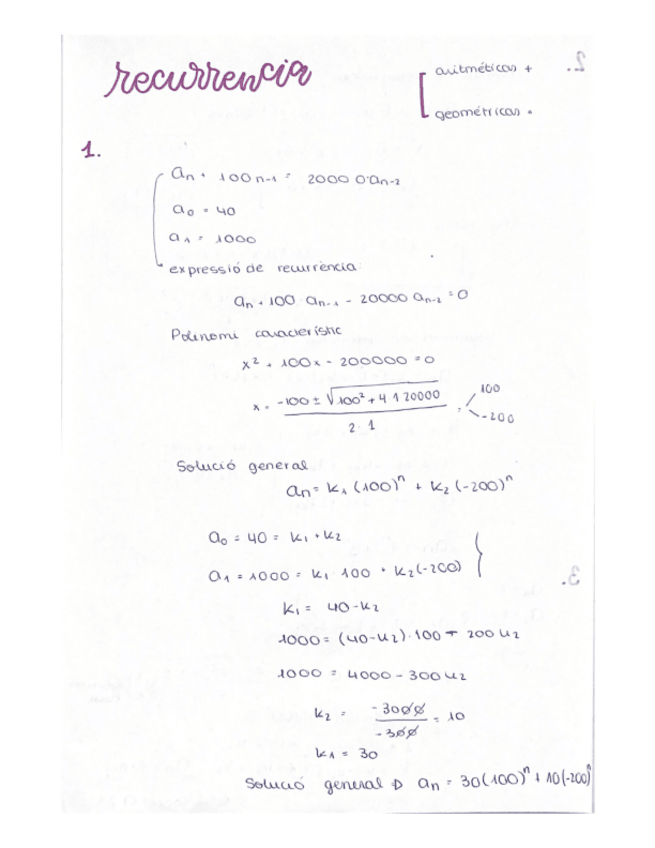 recurrencia
aritméticas +
geométricas ·
2.
1.
an + 100n-1 = 2000 0·an-2
a0 = 40
a1 = 1000
expressió de recurrència:
an + 100 · an-1 - 20000 an-2 = 0
Polinomi característic
x² + 100x - 200000 = 0
x = (-100 ± √(100² + 4·1·20000)) / (2·1) = 100
-200
Solució general
an = k1 (100)ⁿ + k2 (-200)ⁿ
a0 = 40 = k1 + k2
a1 = 1000 = k1 · 100 + k2(-200)
3.
k1 = 40 - k2
1000 = (40-k2)·100 - 200 k2
1000 = 4000 - 300 k2
k2 = -3000 / -300 = 10
k1 = 30
Solució general ⇒ an = 30(100)ⁿ + 10(-200)ⁿ